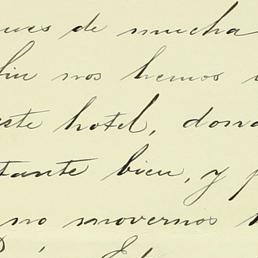 de mucha
fin nos hemos
este hotel, dond
tante bien, y p
no movernos